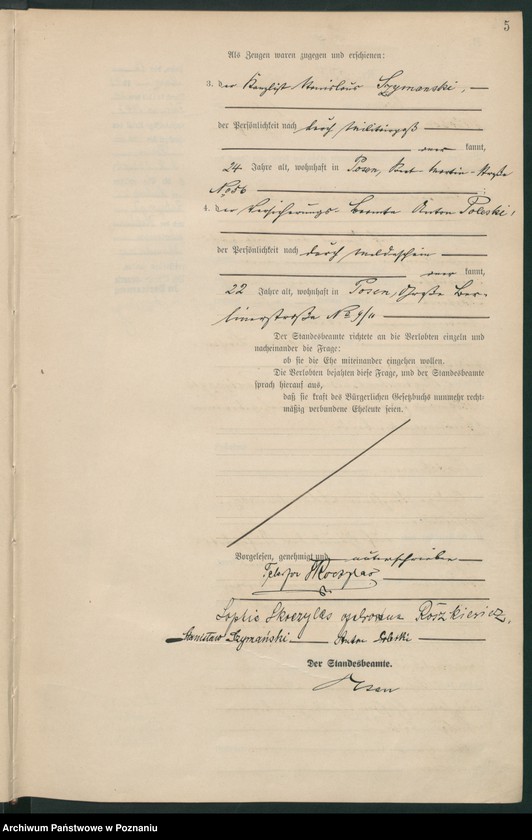 5
Als Zeugen waren zugegen und erschienen:
3. der Kanzlist Stanislaus Szymanski,
der Persönlichkeit nach durch Militärpaß
aner kannt,
24 Jahre alt, wohnhaft in Posen, Sankt Martin-Straße
No 56
4. der Versicherungs-Beamte Anton Poleski,
der Persönlichkeit nach durch Meldeschein
aner kannt,
22 Jahre alt, wohnhaft in Posen, Große Ber-
linerstraße
Der Standesbeamte richtete an die Verlobten einzeln und
nacheinander die Frage:
ob sie die Ehe miteinander eingehen wollen.
Die Verlobten bejahten diese Frage, und der Standesbeamte
sprach hierauf aus,
daß sie kraft des Bürgerlichen Gesetzbuchs nunmehr recht-
mäßig verbundene Eheleute seien.
Vorgelesen, genehmigt und unterschrieben
Sophie Skrzypczak geborene Roszkiewicz,
Stanisław Szymański Anton Poleski
Der Standesbeamte.
Archiwum Państwowe w Poznaniu